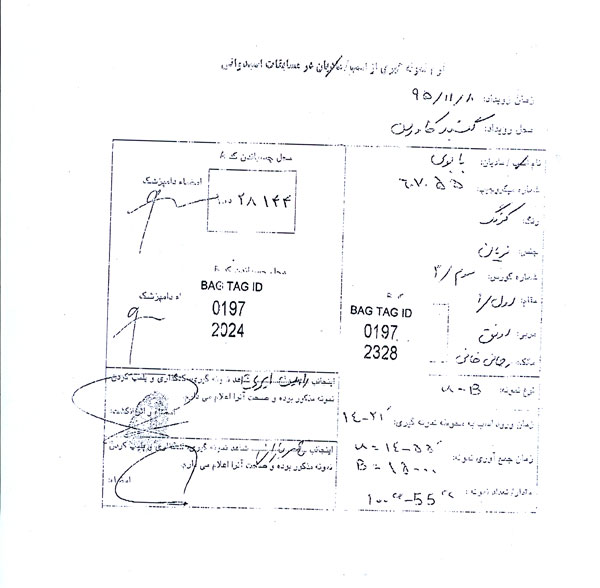 نمونه گیری از اسب / مادیان در مسابقات اسبدوانی
زمان رویداد: ۹۵/۱۱/۸
محل رویداد: گنبد کاووس
نام اسب / مادیان:
شماره میکروچیپ: ۶۰۷۰۵۵
رنگ: کرنگ
جنس: نریان
شماره کورس: سوم / ۳
مقام: اول / ۱
مربی: رونق
مالک:
نوع نمونه: u - B
زمان ورود اسب به محوطه نمونه گیری: ۱۴-۲۱
زمان جمع آوری نمونه: u = ۱۴-۵۵
B = ۱۵-۰۰
مقدار / تعداد نمونه: 100 cc - 55 cc
محل چسباندن کد A
امضاء دامپزشک
۲۸۱۴۴
محل چسباندن کد
امضاء دامپزشک
BAG TAG ID
0197
2024
BAG TAG ID
0197
2328
اینجانب شاهد نمونه گیری، کدگذاری و پلمپ کردن
نمونه مذکور بوده و صحت آنرا اعلام می دارم.
امضاء و اثر انگشت:
اینجانب شاهد نمونه گیری، کدگذاری و پلمپ کردن
نمونه مذکور بوده و صحت آنرا اعلام می دارم.
امضاء: